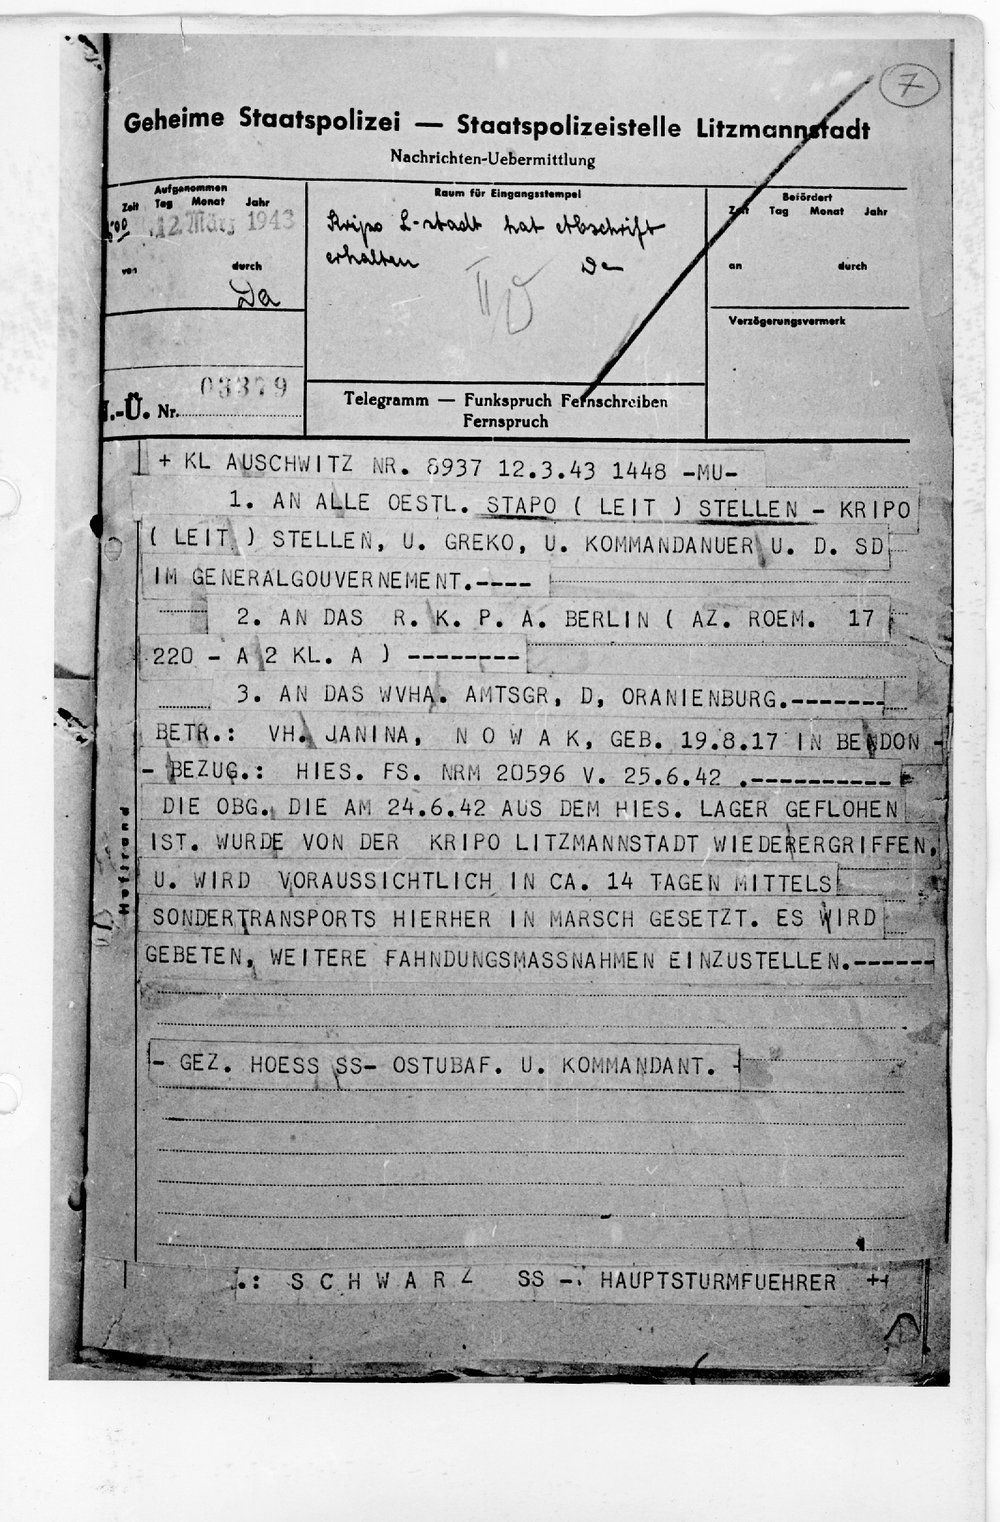 7
Geheime Staatspolizei — Staatspolizeistelle Litzmannstadt
Nachrichten-Uebermittlung
Aufgenommen
Zeit Tag Monat Jahr
12. März 1943
von durch
Da
Raum für Eingangsstempel
Kripo L-stadt hat Abschrift
erhalten Da
Befördert
Zeit Tag Monat Jahr
an durch
Verzögerungsvermerk
03379
.-Ü. Nr.
Telegramm — Funkspruch Fernschreiben
Fernspruch
+ KL AUSCHWITZ NR. 6937 12.3.43 1448 -MU-
1. AN ALLE OESTL. STAPO ( LEIT ) STELLEN - KRIPO
( LEIT ) STELLEN, U. GREKO, U. KOMMANDANUER U. D. SD
IM GENERALGOUVERNEMENT.----
2. AN DAS R. K. P. A. BERLIN ( AZ. ROEM. 17
220 - A 2 KL. A ) --------
3. AN DAS WVHA. AMTSGR, D, ORANIENBURG.-------
BETR.: VH. JANINA, N O W A K, GEB. 19.8.17 IN BENDON -
- BEZUG.: HIES. FS. NRM 20596 V. 25.6.42 .----------
DIE OBG. DIE AM 24.6.42 AUS DEM HIES. LAGER GEFLOHEN
IST. WURDE VON DER KRIPO LITZMANNSTADT WIEDERERGRIFFEN,
U. WIRD VORAUSSICHTLICH IN CA. 14 TAGEN MITTELS
SONDERTRANSPORTS HIERHER IN MARSCH GESETZT. ES WIRD
GEBETEN, WEITERE FAHNDUNGSMASSNAHMEN EINZUSTELLEN.------
Heftrand
- GEZ. HOESS SS- OSTUBAF. U. KOMMANDANT. -
.: S C H W A R Z SS -. HAUPTSTURMFUEHRER ++